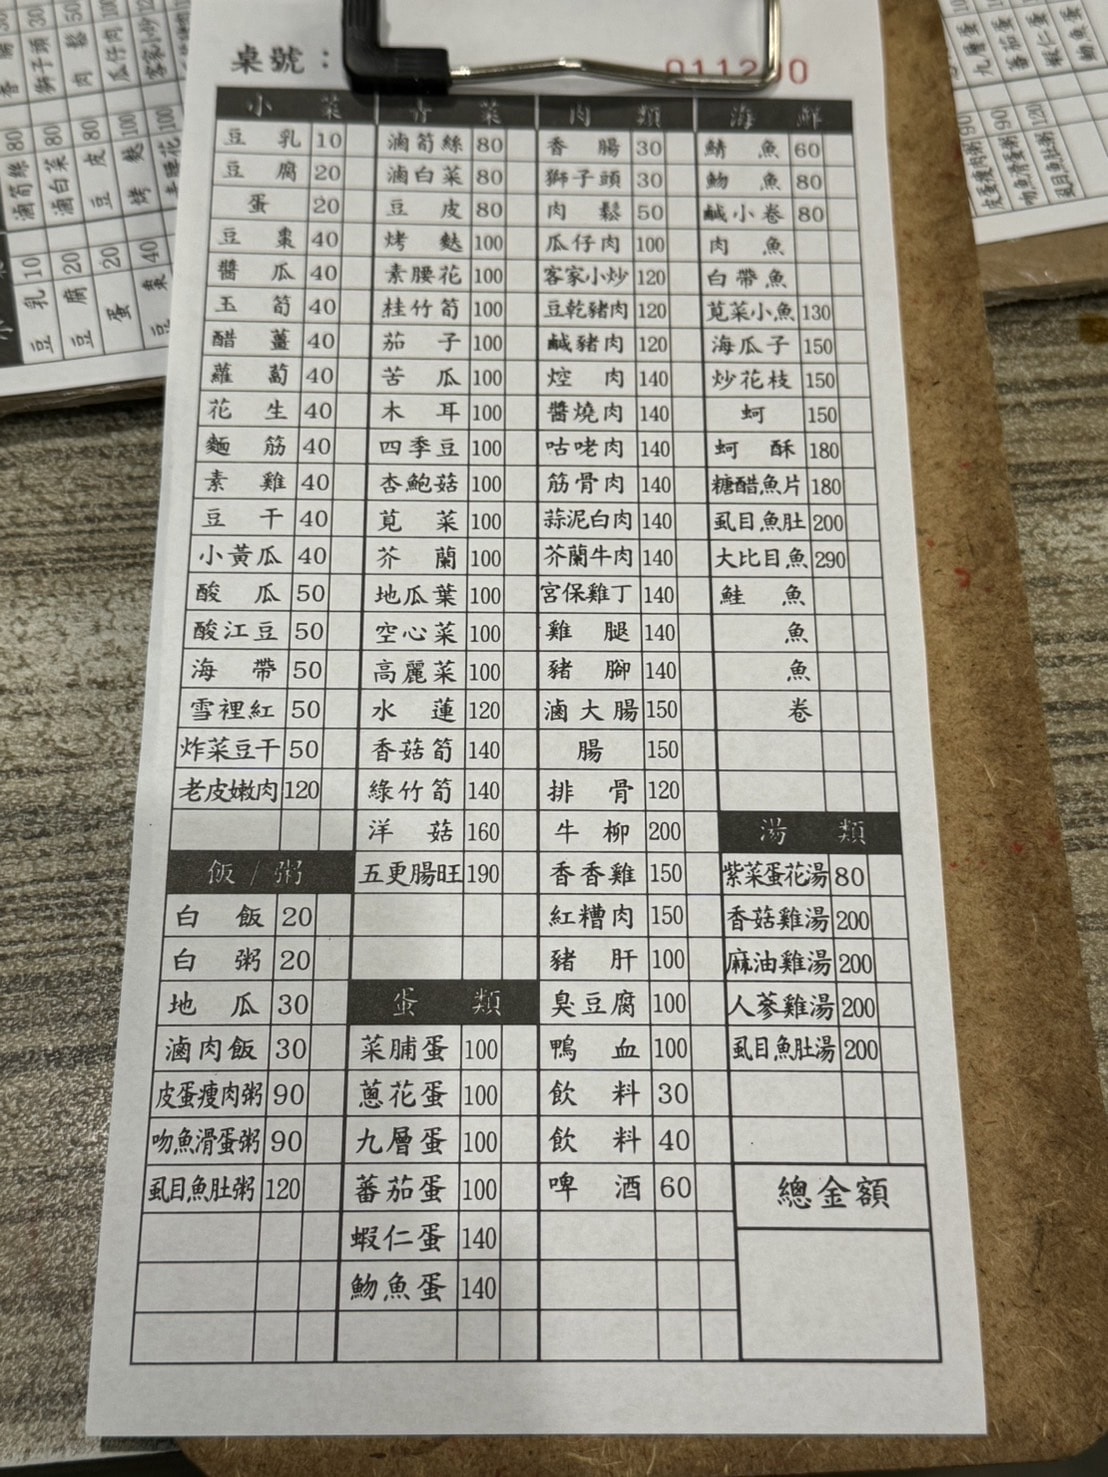 桌號：
小菜
豆乳 10
豆腐 20
蛋 20
豆棗 40
醬瓜 40
玉筍 40
醋薑 40
蘿蔔 40
花生 40
麵筋 40
素雞 40
豆干 40
小黃瓜 40
酸瓜 50
酸江豆 50
海帶 50
雪裡紅 50
炸菜豆干 50
老皮嫩肉 120
飯/粥
白飯 20
白粥 20
地瓜 30
滷肉飯 30
皮蛋瘦肉粥 90
吻魚滑蛋粥 90
虱目魚肚粥 120
青菜
滷筍絲 80
滷白菜 80
豆皮 80
烤麩 100
素腰花 100
桂竹筍 100
茄子 100
苦瓜 100
木耳 100
四季豆 100
杏鮑菇 100
莧菜 100
芥蘭 100
地瓜葉 100
空心菜 100
高麗菜 100
水蓮 120
香菇筍 140
綠竹筍 140
洋菇 160
五更腸旺 190
蛋類
菜脯蛋 100
蔥花蛋 100
九層蛋 100
蕃茄蛋 100
蝦仁蛋 140
魩魚蛋 140
肉類
香腸 30
獅子頭 30
肉鬆 50
瓜仔肉 100
客家小炒 120
豆乾豬肉 120
鹹豬肉 120
焢肉 140
醬燒肉 140
咕咾肉 140
筋骨肉 140
蒜泥白肉 140
芥蘭牛肉 140
宮保雞丁 140
雞腿 140
豬腳 140
滷大腸 150
腸 150
排骨 120
牛柳 200
香香雞 150
紅糟肉 150
豬肝 100
臭豆腐 100
鴨血 100
飲料 30
飲料 40
啤酒 60
海鮮
鯖魚 60
魩魚 80
鹹小卷 80
肉魚
白帶魚
莧菜小魚 130
海瓜子 150
炒花枝 150
蚵 150
蚵酥 180
糖醋魚片 180
虱目魚肚 200
大比目魚 290
鮭魚
魚
魚
卷
湯類
紫菜蛋花湯 80
香菇雞湯 200
麻油雞湯 200
人蔘雞湯 200
虱目魚肚湯 200
總金額